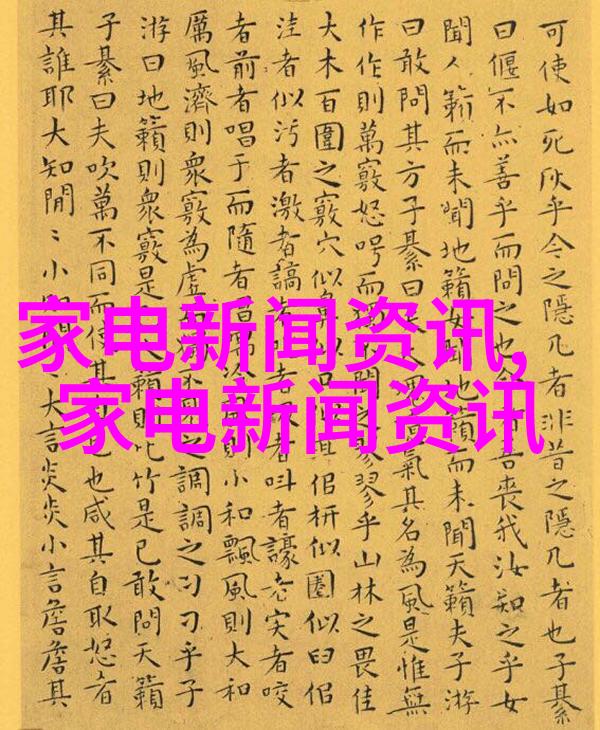 可使如死灰乎今之隱几者非昔之隱几者也子綦
曰偃不亦善乎而問之也吾喪我汝知之乎女
聞人籟而未聞地籟女聞地籟而未聞天籟夫子游
曰敢問其方子綦曰氣其名為風是惟無
作作則萬竅怒呺而獨聞翏翏乎山林之畏佳
大木百圍之竅穴似鼻似口枅似圈似臼佀
洼者似污者激者謞者者叫者譹者実者咬
者前者唱于而隨者唱則小和飄風則大和
厲風濟則衆竅為虛見之調調之刁刁乎子
游曰地籟則衆竅是籟則比竹是已敢問天籟
子綦曰夫吹萬不同而使其也咸其自取怒者
其誰耶大知閒〻小大言炎炎小言詹詹其
家电新闻资讯,
家电新闻资讯